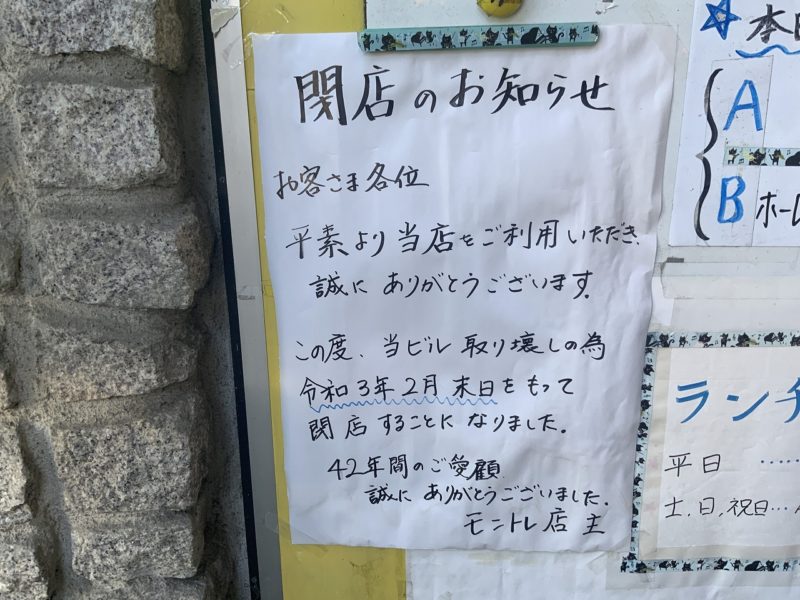 閉店のお知らせ
お客さま各位
平素より当店をご利用いただき、
誠にありがとうございます。
この度、当ビル取り壊しの為
令和3年2月末日をもって
閉店することになりました。
42年間のご愛顧
誠にありがとうございました。
モントレ店主
☆本日
A
B ホーム
ランチ
平日 ……
土、日、祝日…